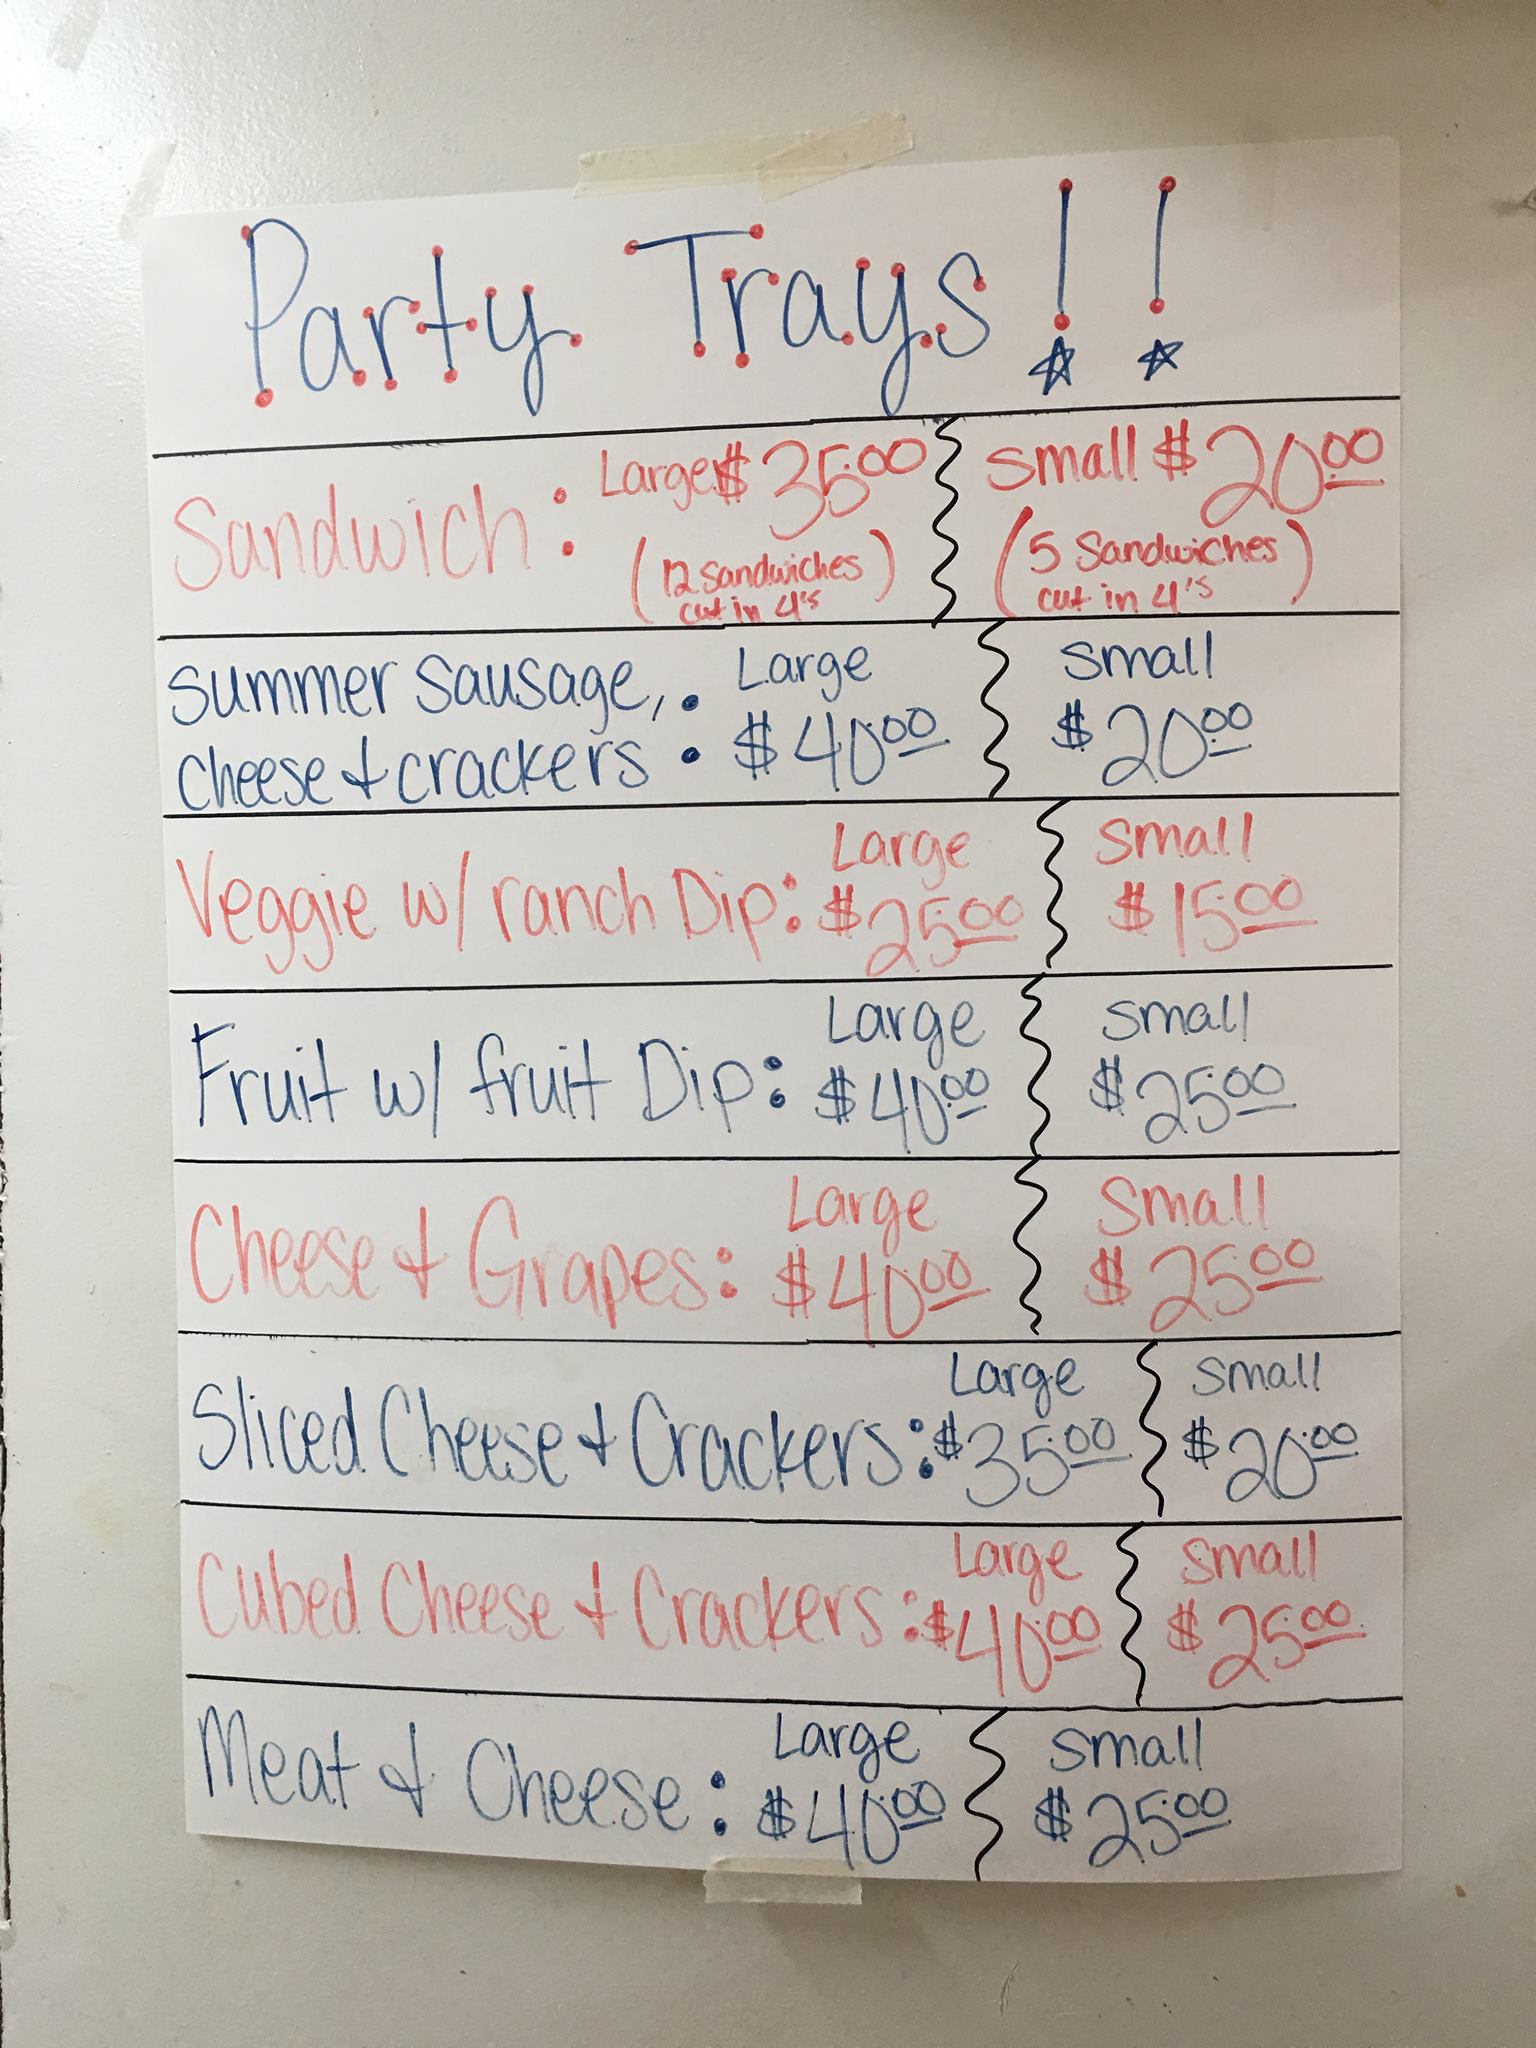 Party Trays!!
Sandwich: Large $35.00 Small $20.00
(12 Sandwiches cut in 4's) (5 Sandwiches cut in 4's)
Summer Sausage, Large Small
cheese & crackers: $40.00 $20.00
Veggie w/ ranch Dip: Large $25.00 Small $15.00
Fruit w/ fruit Dip: Large $40.00 Small $25.00
Cheese & Grapes: Large $40.00 Small $25.00
Sliced Cheese & Crackers: Large $35.00 Small $20.00
Cubed Cheese & Crackers: Large $40.00 Small $25.00
Meat & Cheese: Large $40.00 Small $25.00